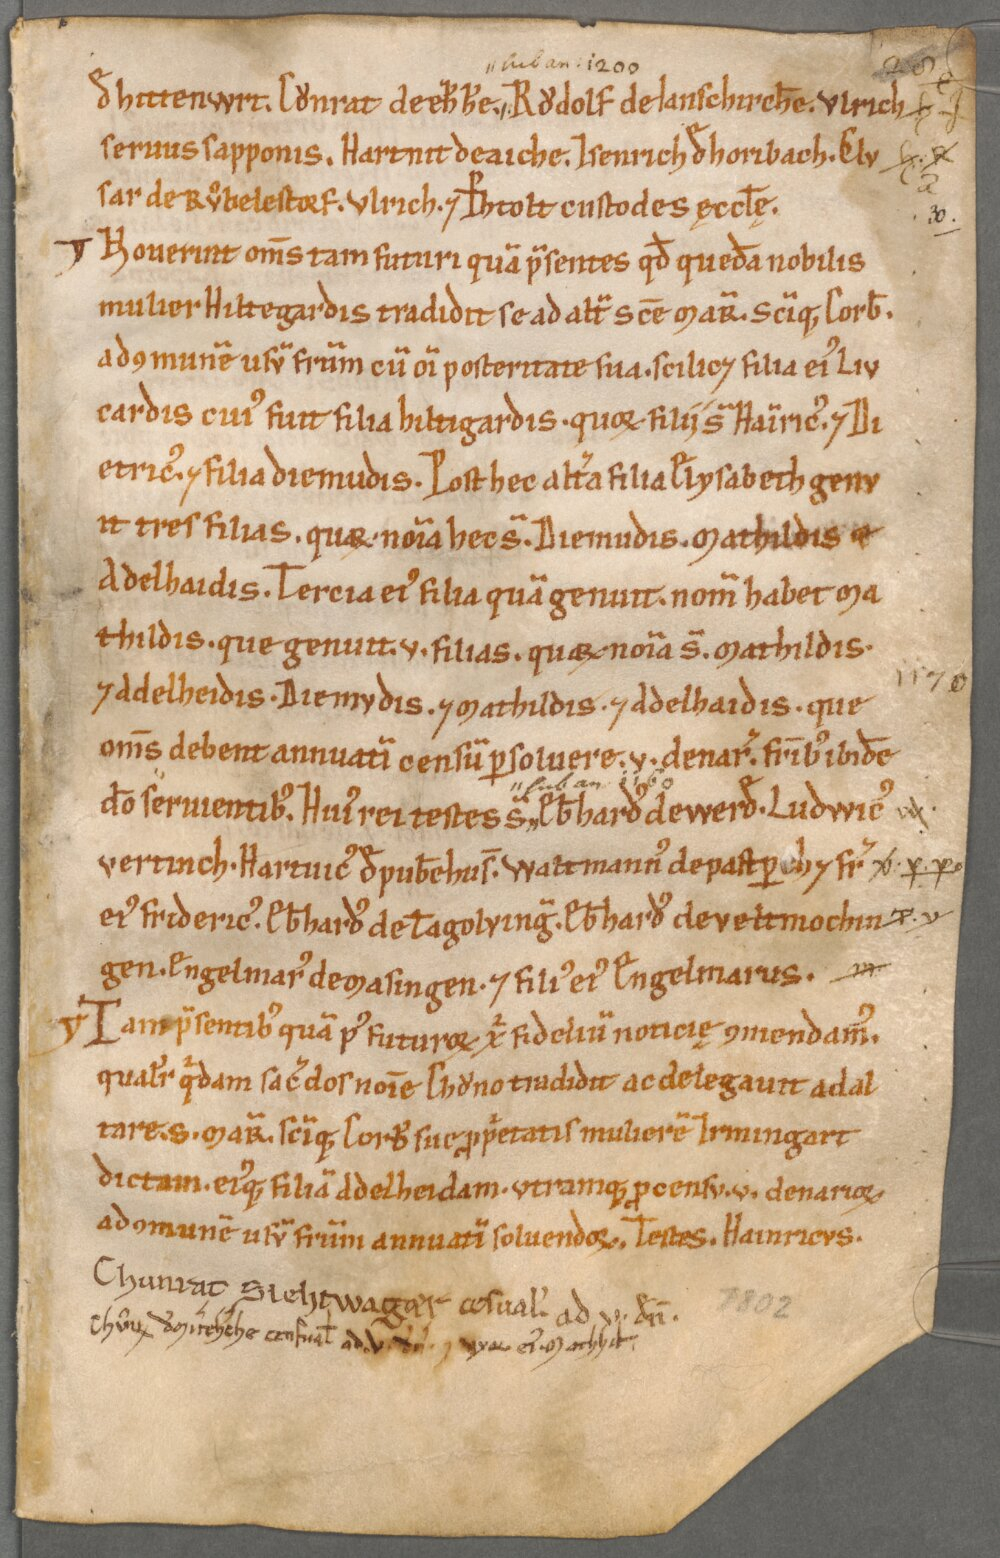 „sub an: 1200
đ hittenwrt. Cůnrat de eb̄b̄e. Růdolf de lanschirch̄e. Vlrich
seruus sapponis. Hartnit de aiche. Isenrich đ horibach. Elv
sar de Rv̊belestorf. Vlrich. ⁊ P̄htolt custodes ęccl̄ę.
Nouerint om̄s tam futuri quā p̄sentes qđ quedā nobilis
mulier Hiltegardis tradidit se ad alt̄ sc̄e Mar̄. sc̄iq; Corb̄.
ad ꝯmunē usv̄ fr̄um cū oī posteritate sua. scilicꝫ filia eiꝰ Liv
cardis cuiꝰ fuit filia hiltigardis. quoꝝ filij s̄ Haīricꝰ. ⁊ Di
etricꝰ. ⁊ filia diemudis. Post hec alt̄a filia Elysabeth genv
it tres filias. quaꝝ noīa hec s̄. Diemudis. Mathildis et
Adelhaidis. Tercia eiꝰ filia quā genuit. nom̄ habet Ma
thildis. que genuit. v. filias. quaꝝ noīa s̄. Mathildis.
1170
⁊ Adelheidis. Diemvdis. ⁊ Mathildis. ⁊ Adelhaidis. que
om̄s debent annuatī censū ꝑsoluere. v. denar̄. fr̄ibꝰ ibidē
„sub an 1160
dō seruientibꝰ. Huiꝰ rei testes s̄. Eb̄hardꝰ de werđ. Ludwicꝰ
vertinch. Hartuicꝰ đ pub̄chus̄. Waltmannꝰ de pastꝑch ⁊ fr̄
eiꝰ fridericꝰ. Eb̄hardꝰ de Tagolvinḡ. Eb̄hardꝰ de veltmochin
gen. Engelmarꝰ de Masingen. ⁊ filiꝰ eiꝰ Engelmarus.
Tam p̄sentibꝰ quā pꝰ futuroꝝ x̄ fideliū noticię ꝯmendamꝰ.
qualr̄ qdam sac̄dos noīe Chůno tradidit ac delegauit ad al
tare. s. Mar̄. sc̄iq; Corb̄ suę ꝓp̄etatis mulierē Irmingart
dictam. eiꝰq; filiā Adelheidam. vtramq; ꝓ censv. v. denarioꝝ
ad ꝯmunē usv̄ fr̄um annuatī soluendoꝝ. Testes. Hainricvs.
Chunrat Siehtwager cēsual' ad v. đn̄.
7802